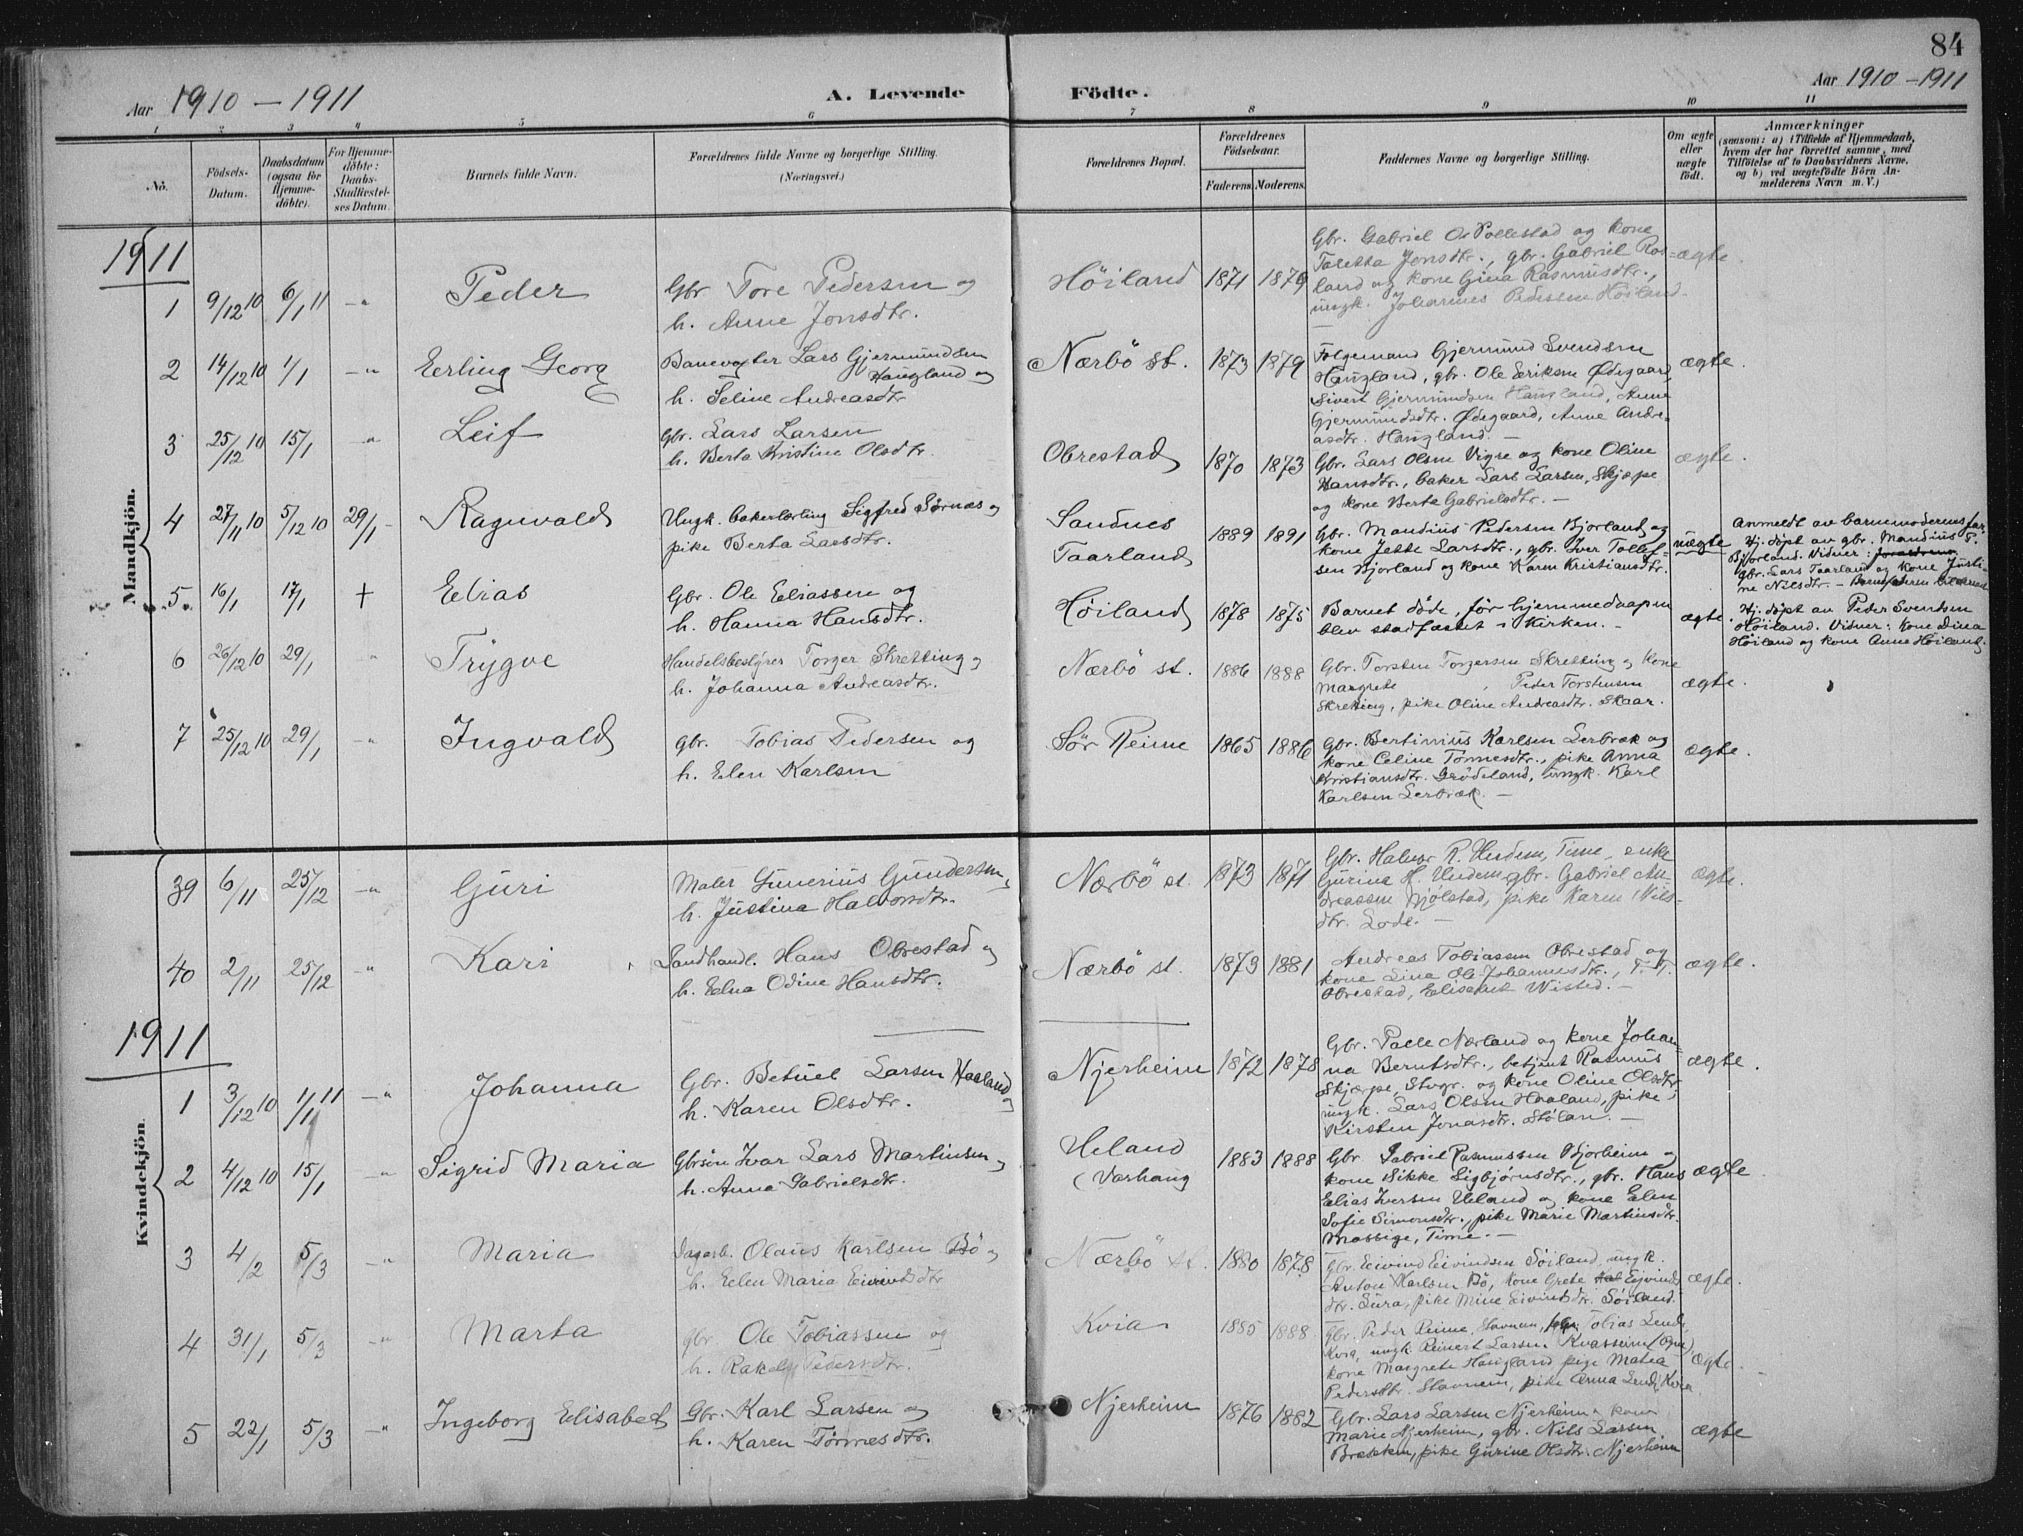 84
Aar 1910 – 1911 A. Levende Födte. Aar 1910 – 1911
1 2 3 4 5 6 7 8 9 10 11
No.
Födsels-
Datum.
Daabsdatum
(ogsaa för
Hjemme-
döbte).
For Hjemme-
döbte:
Daabs-
Stadfæstel-
ses Datum.
Barnets fulde Navn.
Forældrenes fulde Navne og borgerlige Stilling.
(Næringsvei.)
Forældrenes Bopæl.
Forældrenes
Födselsaar.
Faderens. Moderens.
Faddernes Navne og borgerlige Stilling.
Om ægte
eller
uægte
födt.
Anmærkninger
(saasom: a) i Tilfælde af Hjemmedaab,
hvem der har forrettet samme, med
Tilföielse af to Daabsvidners Navne.
og b) ved uægtefödte Börn An-
melderens Navn m. V.)
Mandkjön.
1911
1 9/12 10 6/1 11 –"– Peder
Gbr Tore Pedersen og
h. Anne Jonsdtr.
Höiland 1871
Gbr. Gabriel Pollestad og kone
Taletta Jonsdtr., gbr. Gabriel Ros-
land og kone Gina Rasmusdtr.,
ungk. Johannes Pedersen Höiland.
ægte.
2 14/12 10 1/1 –"– Erling Georg
Banevogter Lars Gjermundsen
Haugland og
h. Seline Andreasdtr
Nærbö st. 1873 1879
Følgemand Gjermund Svendsen
Haugland, gbr. Ole Eriksen Ødegaard,
Sivert Gjermundsen Haugland, Anne
Gjermundsdtr. Ødegaard, Anne Andre-
asdtr. Haugland. –
ægte.
3 25/12 10 15/1 –"– Leif
Gbr. Lars Larsen
h. Berta Kristine Olsdtr.
Obrestad 1870 1873
Gbr. Lars Olsen Vigre og kone Oline
Hansdtr., baker Lars Larsen, Skjæpe
og kone Berta Gabrielsdtr. –
ægte.
4 27/11 10 5/12 10 29/1 – Ragnvald
Ungk. bakerlærling Sigfred Sørnæs og
pike Berta Larsdtr.
Sandnes
Taarland
1889 1891
Gbr. Mandius Pedersen Bjorland og
kone Jette Larsdtr., gbr. Iver Tollef-
sen Bjorland og kone Karen Kristiansdtr.
uægte
Anmeldt av barnemoderens far
Hj. döpt av gbr. Mandius P.
Bjorland. Vidner:
gbr. Lars Taarland og kone Justi-
ne Nilsdtr. –
5 16/1 17/1 + Elias
Gbr. Ole Eliassen og
h. Hanna Hansdtr.
Höiland 1878 1875
Barnet döde, för hjemmedaapen
blev stadfæstet i Kirken. –
ægte.
Hj. döpt av Peder Svendsen
Höiland. Vidner: Kone Dina
Höiland og kone Anne Höiland.
6 26/12 10 29/1 " Trygve
Handelsbestyrer Torger Skretting og
h. Johanna Andreasdtr.
Nærbö st. 1886 1888
Gbr. Torsten Torgersen Skretting og kone
Margrete , Peder Torstensen
Skretting, pike Oline Andreasdtr. Skaar.
ægte.
7 25/12 10 29/1 " Ingvald
Gbr. Tobias Pedersen og
h. Elen Karlsen
Sör Reime 1865 1886
Gbr. Bertinius Karlsen Serbræk og
kone Celine Tönnesdtr., pike Anna
Kristiansdtr. Grödeland, ungk. Karl
Karlsen Serbræk. –
ægte.
Kvindekjön.
39 6/11 25/12 –"– Guri
Maler Gunerius Gundersen,
h. Justina Halvorsdtr.
Nærbö st. 1873 1871
Gbr. Halvor R. Undem, Time, enke
Gurina H. Undem, gbr. Gabriel An-
dreassen Njölstad, pike Karen Nils-
dtr. Lode. –
ægte.
40 2/11 25/12 " Kari
Landhandl. Hans Obrestad og
h. Elna Odine Hansdtr.
Nærbö st. 1873 1881
Andreas Tobiassen Obrestad og
kone Lina Ole Johannesdtr., T. T.
Obrestad, Elisabet Wisted. –
ægte.
1911
1 3/12 10 1/1 11 –"– Johanna
Gbr. Betuel Larsen Haaland og
h. Karen Olsdtr.
Njerheim 1872 1878
Gbr. Palle Nærland og kone Johan-
na Berntsdtr., betjent Rasmus
Skjæpe, Stvgr. og kone Oline Olsdtr
ungk. Lars Olsen Haaland, pike
Kirsten Jonasdtr. Stölan. –
ægte.
2 4/12 10 15/1 –"– Sigrid Maria
Gbrsön Ivar Lars Martinsen,
h. Anna Gabrielsdtr.
Ueland
(Varhaug
1883 1888
Gbr. Gabriel Rasmussen Bjorheim og
kone Sikke Sigbjörnsdtr., gbr. Hans
Elias Iversen Ueland og kone Elen
Sofie Simonsdtr., pike Marie Martinsdtr.
Mossige, Time. –
ægte
3 4/2 5/3 –"– Maria
Dagarb. Olaus Karlsen Bö og
h. Elen Maria Eivindsdtr
Nærbö st. 1880 1878
Gbr. Eivind Eivindsen Söiland, ungk.
Anton Karlsen Bö, kone Grete Eivinds
dtr. Lura, pike Mine Eivindsdtr. Söiland.
ægte.
4 31/1 5/3 –"– Marta
gbr. Ole Tobiassen og
h. Rakel Pedersdtr.
Kvia 1885 1888
Gbr. Peder Reime, Stavnem, gbr. Tobias Lende
Kvia, ungk. Reinert Larsen Kvasseim (Ogne)
kone Margrete Haugland pige Matea
Pedersdtr. Stavnem, pike Anna Lende, Kvia.
ægte.
5 22/1 5/3 –"– Ingeborg Elisabet
Gbr. Karl Larsen og
h. Karen Tönnesdtr.
Njerheim 1876 1882
Gbr. Lars Larsen Njerheim, kone
Marie Njerheim, gbr. Nils Larsen
Brekken, pike Gurine Olsdtr. Njerheim
ægte